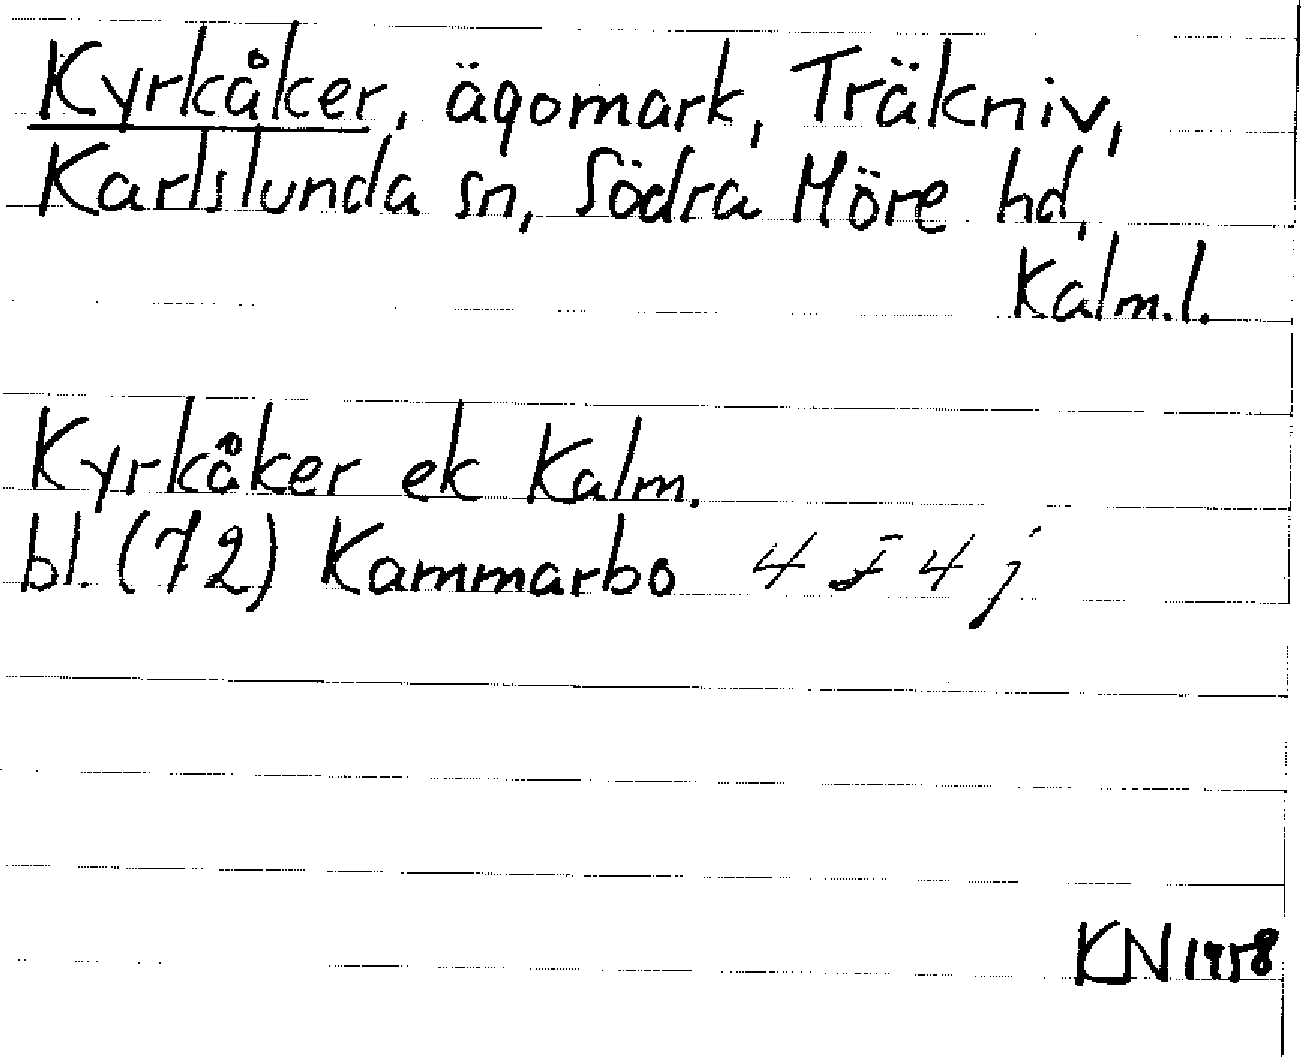 Kyrkåker, ägomark, Träkniv,
Karlslunda sn, Södra Möre hd,
Kalm.l.
Kyrkåker ek Kalm.
bl. (72) Kammarbo 4 F 4 j
KN 1958